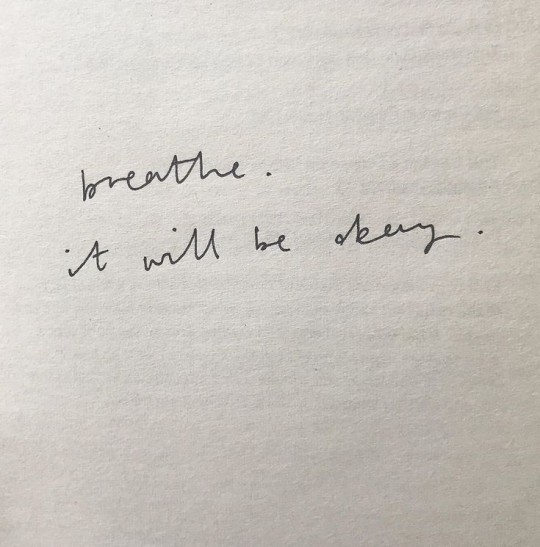 breathe.
it will be okay.